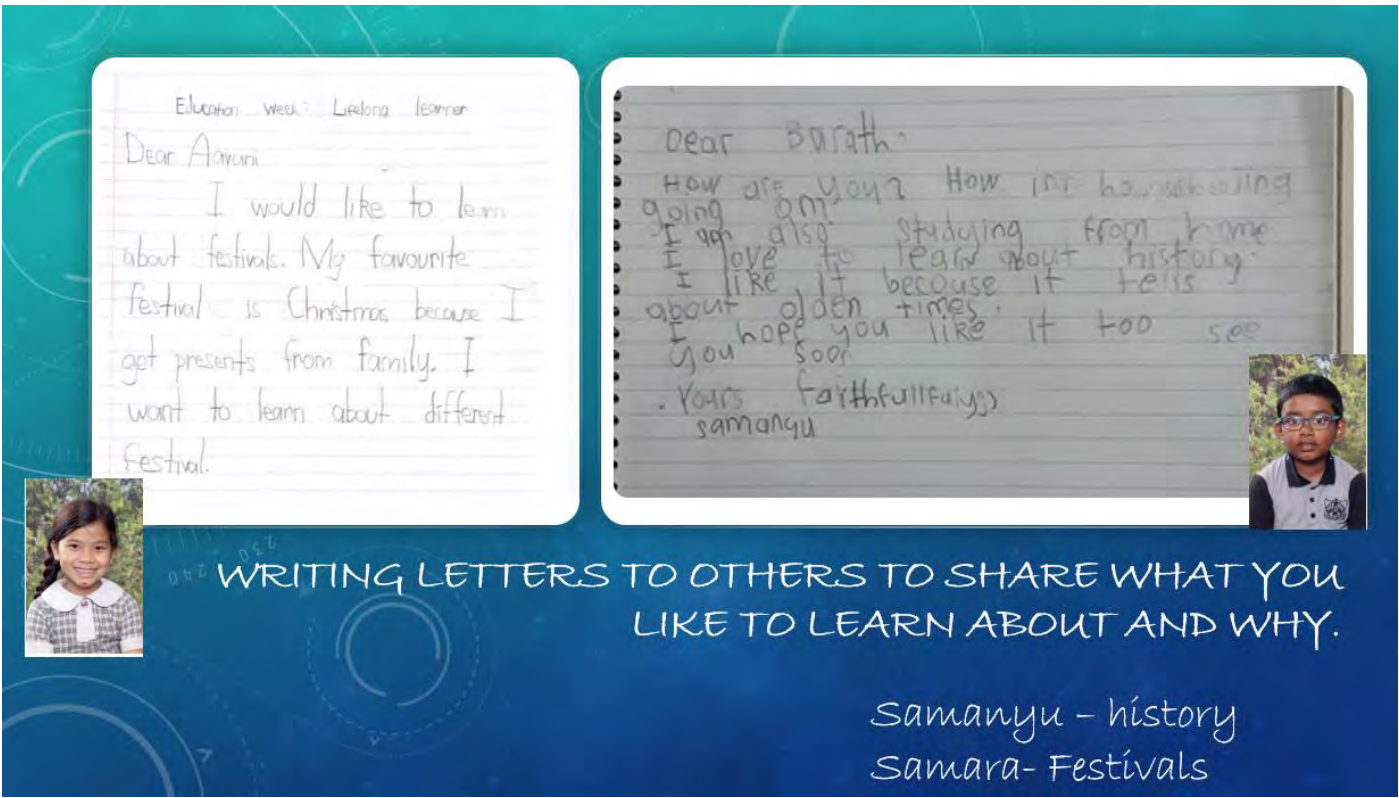 Education week: Lifelong learner
Dear Aavani
I would like to learn
about festivals. My favourite
festival is Christmas because I
get presents from family. I
want to learn about different
festival.
Dear Barath.
How are you? How homeschooling
going on
I am also studying from home
I love to learn about history.
I like it because it tells
about olden times.
I hope you like it too see
you soon
. Yours
samanyu
230
240
WRITING LETTERS TO OTHERS TO SHARE WHAT YOU
LIKE TO LEARN ABOUT AND WHY.
Samanyu – history
Samara- Festivals